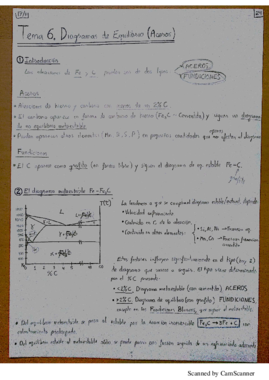 17/14
Tema 6. Diagramas de Equilibrio (Aceros)
① Introducción
Son aleaciones de Fe y C, pueden ser de dos tipos:
ACEROS
FUNDICIONES
Aceros
• Aleaciones de hierro y carbono con menos de un 2% C.
• El carbono aparece en forma de carburo de hierro (Fe3C - Cementita) y siguen un diagrama
de eq. metaestable.
• Pueden aparecer otros elementos (Mn, Si, S, P) en pequeñas cantidades que no afectan al diagrama
Fundiciones
• El C aparece como grafito (en forma libre) y siguen el diagrama de eq. estable Fe-C.
② El diagrama metaestable Fe-Fe3C
La tendencia a que se siga el diagrama estable/metaest. depende:
• Velocidad enfriamiento
• Contenido en C de la aleación.
• Contenido en otros elementos:
L
%C
Estos factores influyen significativamente en el tipo (eq.)
de diagrama que vamos a seguir. El tipo viene determinado
por el % C presente:
• <2% C Diagrama metaestable (con cementita) ACEROS
• >2% C Diagrama de equilibrio (con grafito) FUNDICIONES
excepto en las Fundiciones Blancas, que siguen el metaestable.
• Del equilibrio metaestable se pasa al estable por la reacción reversible Fe3C → 3Fe + C con
calentamiento prolongado.
• Del equilibrio estable al metaestable sólo se puede pasar por fusión seguida de un enfriamiento adecuado
Scanned by CamScanner